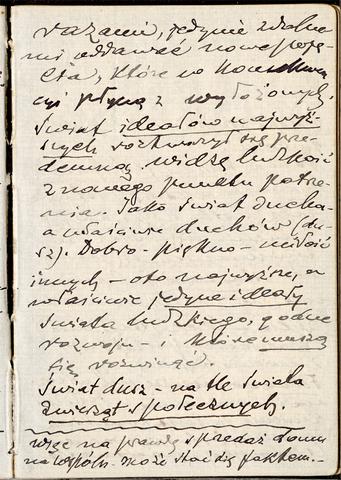 razami, jedynie zdolne
mi oddawać nowe poję-
cia, które w konsekwen
cyi płyną z wyłożonych.
Świat ideałów najwyż-
szych roztworzył się prze-
demną. widzę ludzkość
z nowego punktu patrze-
nia. Jako świat ducha-
a właściwie duchów (du-
sz). Dobro - piękno - miłość
innych - oto najwyższe, a
właściwie jedyne ideały
świata ludzkiego, godne
rozwoju - i które muszą
się rozwinąć.
Świat dusz - na tle świata
zwierząt społecznych.
więc na prawdę sprzedaż domu
na współu. może stać się faktem.-